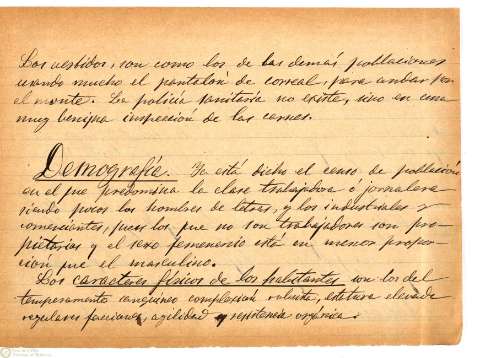 Los vestidos, son como los de las demás poblaciones
usando mucho el pantalón de correal, para andar por
el monte. La policía sanitaria no existe, sino en una
muy benigna inspección de las carnes.
Demografía. Ya está dicho el censo de población
en el que predomina la clase trabajadora ó jornalera
siendo pocos los hombres de letras, y los industriales y
comerciantes, pues los que no son trabajadores son pro-
pietarios y el sexo femenino está en menor propor-
ción que el masculino.
Los caracteres físicos de los habitantes son los del
temperamento sanguineo complexión robusta, estatura elevada
regulares facciones, agilidad y resistencia orgánica.